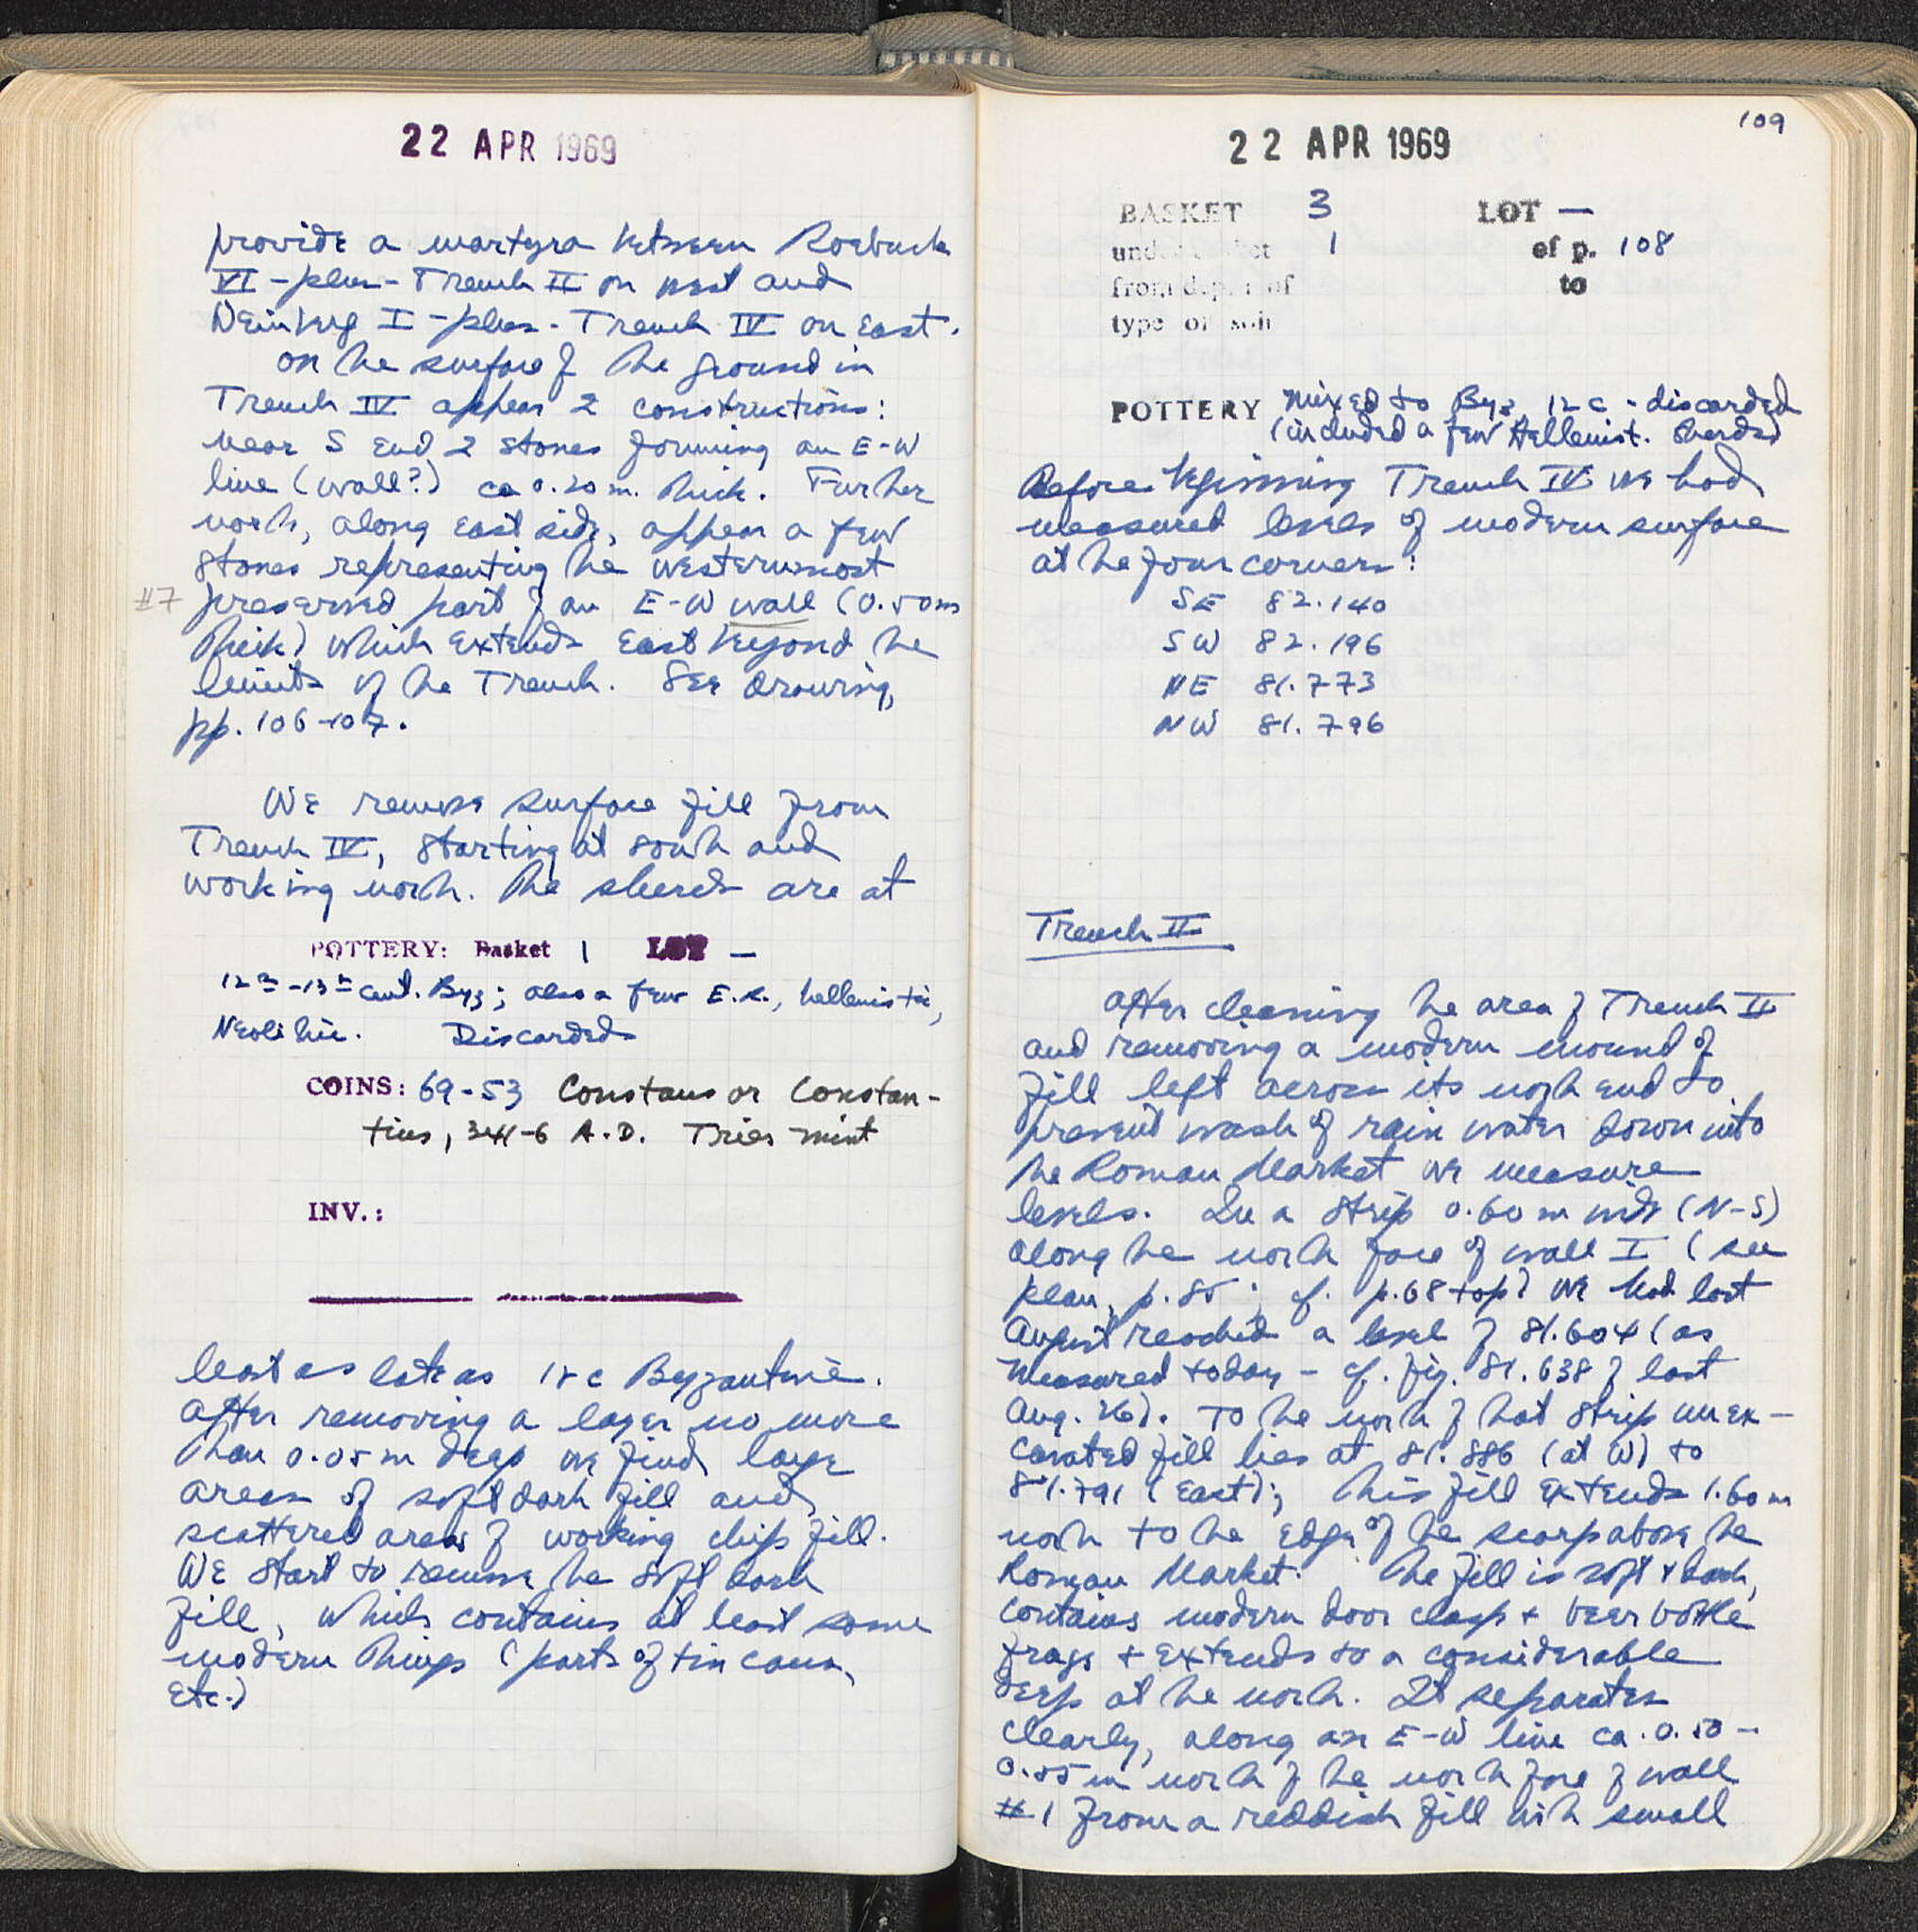 22 APR 1969
provide a martyra between Roebuck
VI - plus - Trench II on west and
Weinberg I - plus - Trench IV on East.
On the surface of the ground in
Trench IV appear 2 constructions:
near S End 2 stones forming an E-W
line (wall?) ca 0.20 m. thick. Further
north, along East side, appear a few
stones representing the westernmost
#7 preserved part of an E-W wall (0.50m
thick) which extends East beyond the
limits of the Trench. See drawing,
pp. 106-107.
We remove surface fill from
Trench IV, starting at south and
working north. The sherds are at
POTTERY: Basket 1 LOT —
12th-13th cent. Byz; also a few E.R., hellenistic,
Neolithic. Discarded
COINS: 69-53 Constans or Constan-
tius, 341-6 A.D. Trier mint
INV.:
least as late as 12 c Byzantine.
After removing a layer no more
than 0.05 m deep we find large
areas of soft dark fill and
scattered areas of working chips fill.
We start to remove the soft dark
fill, which contains at least some
modern things (parts of tin cans,
etc.)
109
22 APR 1969
BASKET 3 LOT —
under basket 1 of p. 108
from depth of to
type of soil
POTTERY mixed to Byz 12 c - discarded
(included a few Hellenist. sherds)
Before beginning Trench IV we had
measured levels of modern surface
at the four corners:
SE 82.140
SW 82.196
NE 81.773
NW 81.796
Trench II
After cleaning the area of Trench II
and removing a modern mound of
fill left across its north end to
prevent wash of rain water down into
the Roman Market we measure
levels. In a strip 0.60 m wide (N-S)
along the north face of wall I (see
plan, p. 85; cf. p. 68 top) we had last
August reached a level of 81.604 (as
measured today - cf. fig. 81.638 of last
Aug. 26). To the north of that strip unex-
cavated fill lies at 81.886 (at W) to
81.791 (East); this fill extends 1.60 m
north to the edge of the scarp above the
Roman Market. The fill is soft & dark,
contains modern door clasp + beer bottle
frags + extends to a considerable
deep at the north. It separates
clearly, along an E-W line ca. 0.50 -
0.55 m north of the north face of wall
#1 from a reddish fill with small